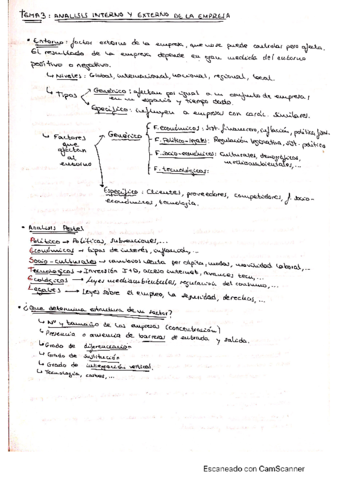 TEMA 3: ANALISIS INTERNO Y EXTERNO DE LA EMPRESA
• Entorno: factor externo de la empresa, que no se puede controlar pero afecta.
El resultado de la empresa depende en gran medida del entorno
positivo o negativo.
↳ Niveles: Global, internacional, nacional, regional, local.
↳ Tipos
Genérico: afectan por igual a un conjunto de empresas
en un espacio y tiempo dado.
Específico: influyen a empresas con caract. similares.
↳ Factores que afectan al entorno
Genérico
F. económicos: Sist. financiero, inflación, política fiscal
F. Político-legales: Regulación legislativa, sist. político
F. Socio-económicos: Culturales, demográficos,
medioambientales,...
F. tecnológicos:
Específico: Clientes, proveedores, competidores, f. socio-
económicos, tecnología.
• Analisis Pestel
Político → Políticas, subvenciones,...
Económicos → tipos de interés, inflación,...
Socio-culturales → cambios renta per cápita, modas, movilidad laboral,...
Tecnologicos → Inversión I+D, acceso internet, avances tecn,...
Ecológicos → Leyes medioambientales, regulación del consumo,...
Legales → Leyes sobre el empleo, la seguridad, derechos,...
• ¿Que determina estructura de un sector?
↳ Nº y tamaño de las empresas (concentración)
↳ Presencia o ausencia de barreras de entrada y salida.
↳ Grado de diferenciación
↳ Grado de sustitución
↳ Grado de integración vertical.
↳ Tecnología, costes,...
Escaneado con CamScanner